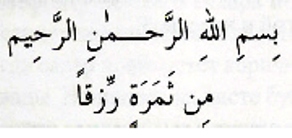 بِسمِ اللهِ الرَّحــمٰنِ الرَّحِيم
مِن ثَمَرَةٍ رِّزقاً